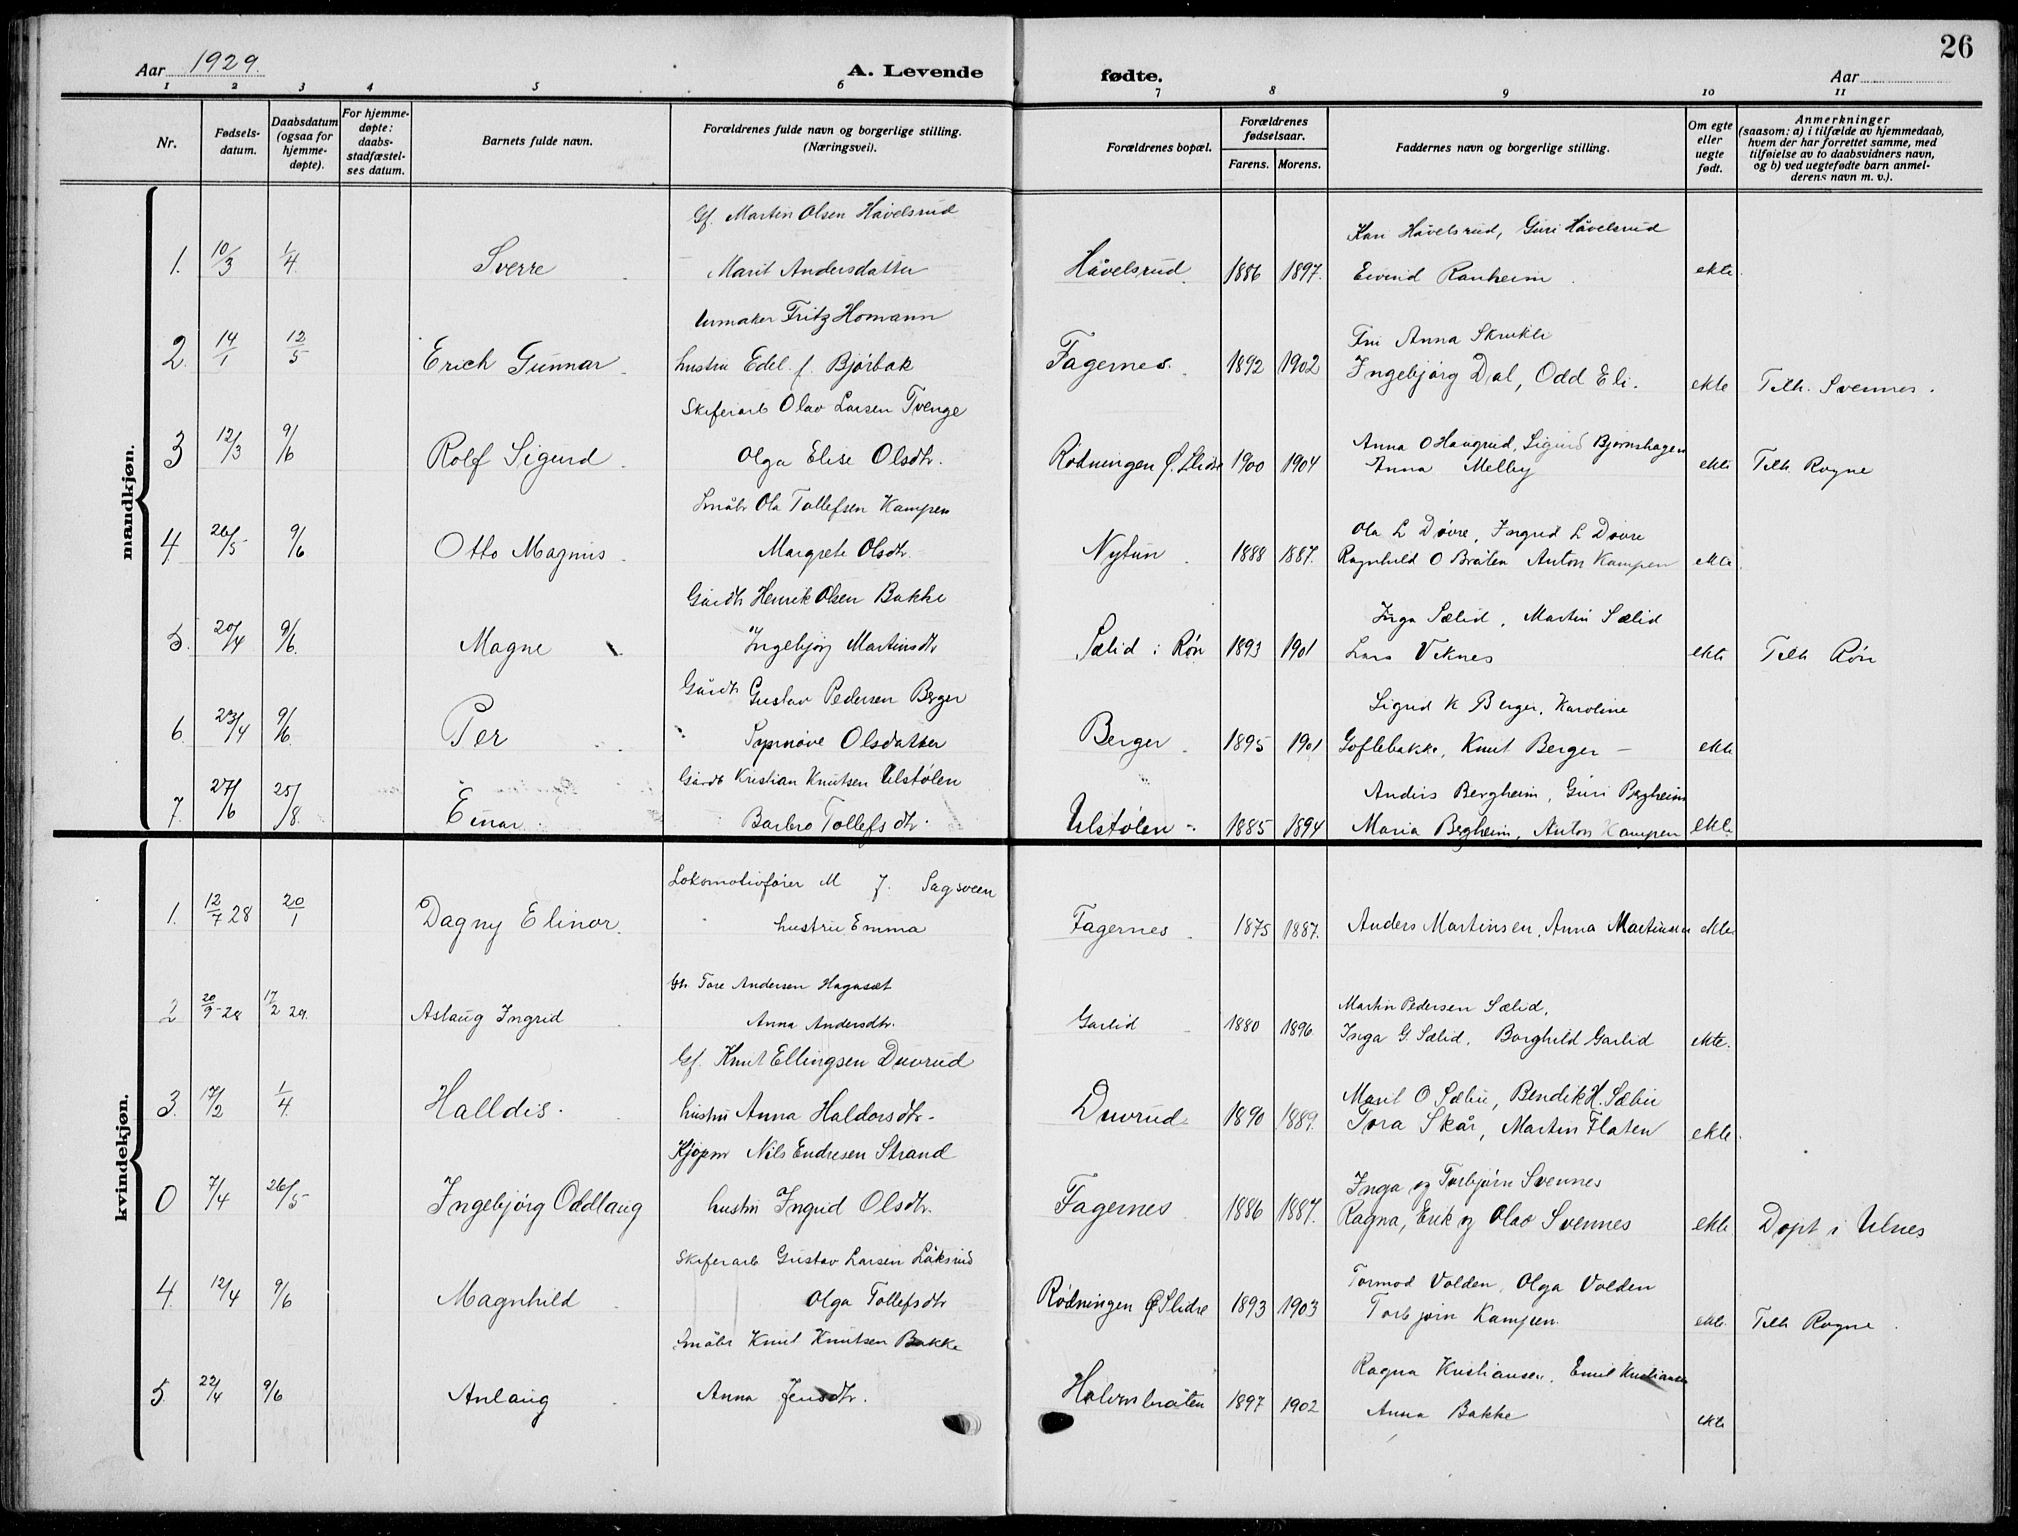 26
Aar 1929.
A. Levende fødte.
Aar
1 2 3 4 5 6 7 8 9 10 11
Nr.
Fødsels-
datum.
Daabsdatum
(ogsaa for
hjemme-
døpte).
For hjemme-
døpte:
daabs-
stadfæstel-
ses datum.
Barnets fulde navn.
Forældrenes fulde navn og borgerlige stilling.
(Næringsvei).
Forældrenes bopæl.
Forældrenes
fødselsaar.
Farens. Morens.
Faddernes navn og borgerlige stilling.
Om egte
eller
uegte
født.
Anmerkninger
(saasom: a) i tilfælde av hjemmedaab,
hvem der har forrettet samme, med
tilføielse av to daabsvidners navn,
og b) ved uegtefødte barn anmel-
derens navn m. v.).
mandkjøn.
Gf. Martin Olsen Håvelsrud
Kari Håvelsrud, Guri Håvelsrud
1. 10/3 1/4. Sverre Marit Andersdatter Håvelsrud. 1886 1897. Eivind Ranheim. ekte
Urmaker Fritz Homann
Fru Anna Skrukli
2. 14/1 12/5 Erich Gunnar. hustru Edel f. Bjørbak Fagernes. 1892 1902 Ingebjørg Dal, Odd Eli. ekte Tilh. Svennes.
Skiferarb Olav Larsen Tvenge
Anna O Haugrud, Sigurd Bjørnshagen
3 12/3 9/6 Rolf Sigurd. Olga Elise Olsdtr. Rødningen Ø. Slidre 1900 1904 Anna Melby ekte Tilh. Rogne
Småbr Ola Tollefsen Kampen
Ola L Døvre, Ingrid L Døvre
4. 26/5 9/6 Otto Magnus. Margrete Olsdtr. Nytun. 1888 1887. Ragnhild O Bråten Anton Kampen ekte.
Gårdbr Henrik Olsen Bakke
Inga Sælid, Martin Sælid
5. 20/4 9/6. Magne Ingebjørg Martinsdtr Sælid i Røn 1893 1901 Lars Viknes ekte Tilh Røn
Gårdbr Gustav Pedersen Berger
Sigrid K Berger, Karoline
6. 23/4 9/6. Per Synnøve Olsdatter Berger. 1895 1901 Goflebakke, Knut Berger – ekte
Gårdb Kristian Knutsen Ulstølen
Anders Bergheim, Guri Bergheim
7. 27/6 25/8. Einar. Barbro Tollefsdtr. Ulstølen -. 1885 1894 Maria Bergheim, Anton Kampen ekte.
kvindekjøn.
Lokomotivfører M J. Sagsveen
1. 12/7 28 20/1 Dagny Elinor. hustru Emma Fagernes. 1875 1887. Anders Martinsen, Anna Martinsen ekte.
Gbr Tore Andersen Hagaset
Martin Pedersen Sælid,
2 20/9-28 17/2 29. Aslaug Ingrid Anna Andersdtr. Garlid 1880 1896. Inga G. Sælid, Borghild Garlid ekte.
Gf. Knut Ellingsen Duvrud
Marit O Sæbu, Bendik H. Sæbu
3. 17/2 1/4 Halldis. hustru Anna Haldorsdtr. Duvrud. 1890 1889. Tora Skår, Martin Flaten ekte.
Kjøpm Nils Endresen Strand
Inga og Torbjørn Svennes
0 7/4 26/5 Ingebjørg Oddlaug hustru Ingrid Olsdtr. Fagernes 1886 1887. Ragna, Erik og Olav Svennes ekte. Døpt i Ulnes
Skiferarb Gustav Larsen Låksrud
Tormod Volden, Olga Volden
4. 12/4 9/6 Magnhild. Olga Tollefsdtr Rødningen Ø Slidre 1893 1903 Torbjørn Kampen. ekte. Tilh Rogne.
Småbr Knut Knutsen Bakke
Ragna Kristiansen, Emil Kristiansen
5. 22/4 9/6 Anlaug Anna Jensdtr. Holvmsbråten 1897 1902 Anna Bakke ekte